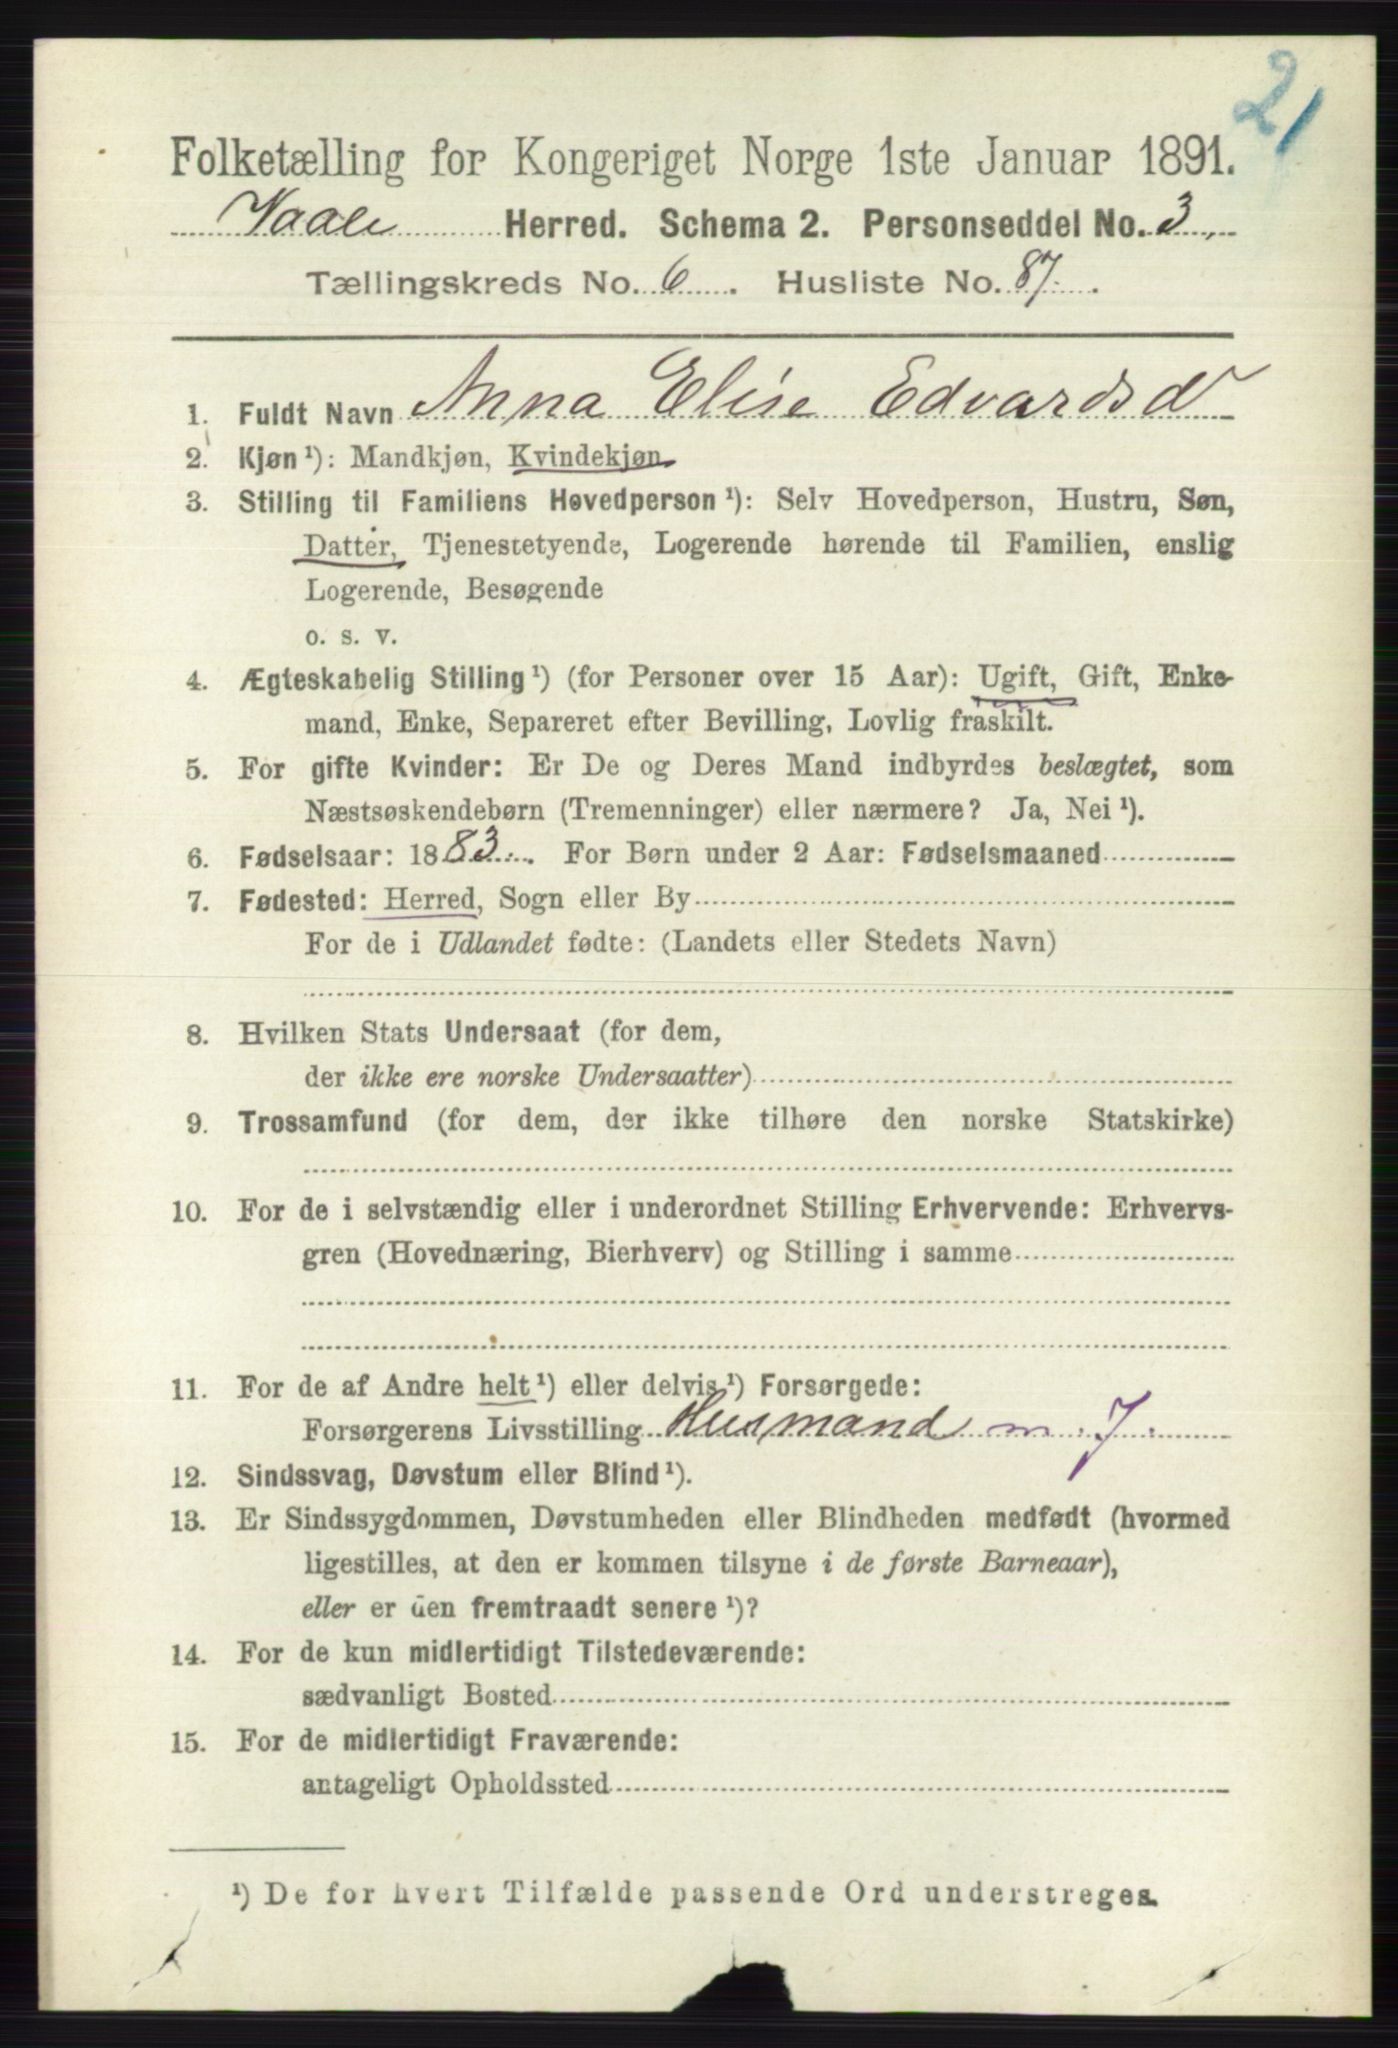 21
Folketælling for Kongeriget Norge 1ste Januar 1891.
Vaale Herred. Schema 2. Personseddel No. 3.
Tællingskreds No. 6. Husliste No. 87.
1. Fuldt Navn Anna Elise Edvardsd
2. Kjøn ¹): Mandkjøn, Kvindekjøn
3. Stilling til Familiens Hovedperson ¹): Selv Hovedperson, Hustru, Søn,
Datter, Tjenestetyende, Logerende hørende til Familien, enslig
Logerende, Besøgende
o. s. v.
4. Ægteskabelig Stilling ¹) (for Personer over 15 Aar): Ugift, Gift, Enke-
mand, Enke, Separeret efter Bevilling, Lovlig fraskilt.
5. For gifte Kvinder: Er De og Deres Mand indbyrdes beslægtet, som
Næstsøskendebørn (Tremenninger) eller nærmere? Ja, Nei ¹).
6. Fødselsaar: 1883. For Børn under 2 Aar: Fødselsmaaned
7. Fødested: Herred, Sogn eller By
For de i Udlandet fødte: (Landets eller Stedets Navn)
8. Hvilken Stats Undersaat (for dem,
der ikke ere norske Undersaatter)
9. Trossamfund (for dem, der ikke tilhøre den norske Statskirke)
10. For de i selvstændig eller i underordnet Stilling Erhvervende: Erhvervs-
gren (Hovednæring, Bierhverv) og Stilling i samme
11. For de af Andre helt ¹) eller delvis ¹) Forsørgede:
Forsørgerens Livsstilling Husmand m. J.
12. Sindssvag, Døvstum eller Blind ¹).
13. Er Sindssygdommen, Døvstumheden eller Blindheden medfødt (hvormed
ligestilles, at den er kommen tilsyne i de første Barneaar),
eller er den fremtraadt senere ¹)?
14. For de kun midlertidigt Tilstedeværende:
sædvanligt Bosted
15. For de midlertidigt Fraværende:
antageligt Opholdssted
¹) De for hvert Tilfælde passende Ord understreges.